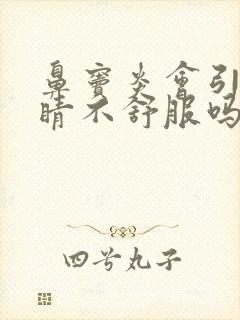 鼻窦炎会引
睛不舒服吗
四号丸子